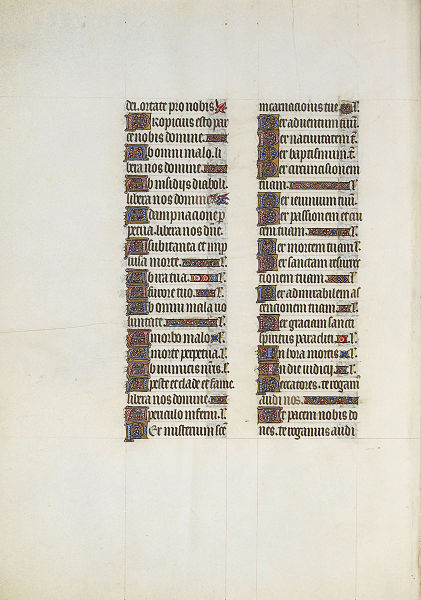 dei. orate pro nobis.
Propicius esto par
ce nobis domine.
Ab omni malo. li
bera nos domine.
Ab insidiis diaboli.
libera nos domine
A dampnacione p
petua. libera nos dne.
A subitanea et imp
uisa morte. l'.
Ab ira tua. l'.
A furore tuo. l'.
Ab omni mala uo
luntate. l'.
A morbo malo. l'.
A morte perpetua. l'.
Ab inimicis nris. l'.
A peste et clade et fame.
libera nos domine.
A periculo inferni. l'.
Per misterium sce
incarnacionis tue. l'.
Per aduentum tuu.
Per natiuitatem t.
Per baptismum. t.
Per circumcisionem
tuam. l'.
Per ieiunium tuu.
Per passionem et cru
cem tuam. l'.
Per mortem tuam. l'.
Per sanctam resurrec
tionem tuam. l'.
Per admirabilem as
cencionem tuam. l'.
Per graciam sancti
spiritus paracliti. l'.
In hora mortis l'.
In die iudicij. l'.
Peccatores. te rogam
audi nos.
Ut pacem nobis do
nes. te rogamus audi